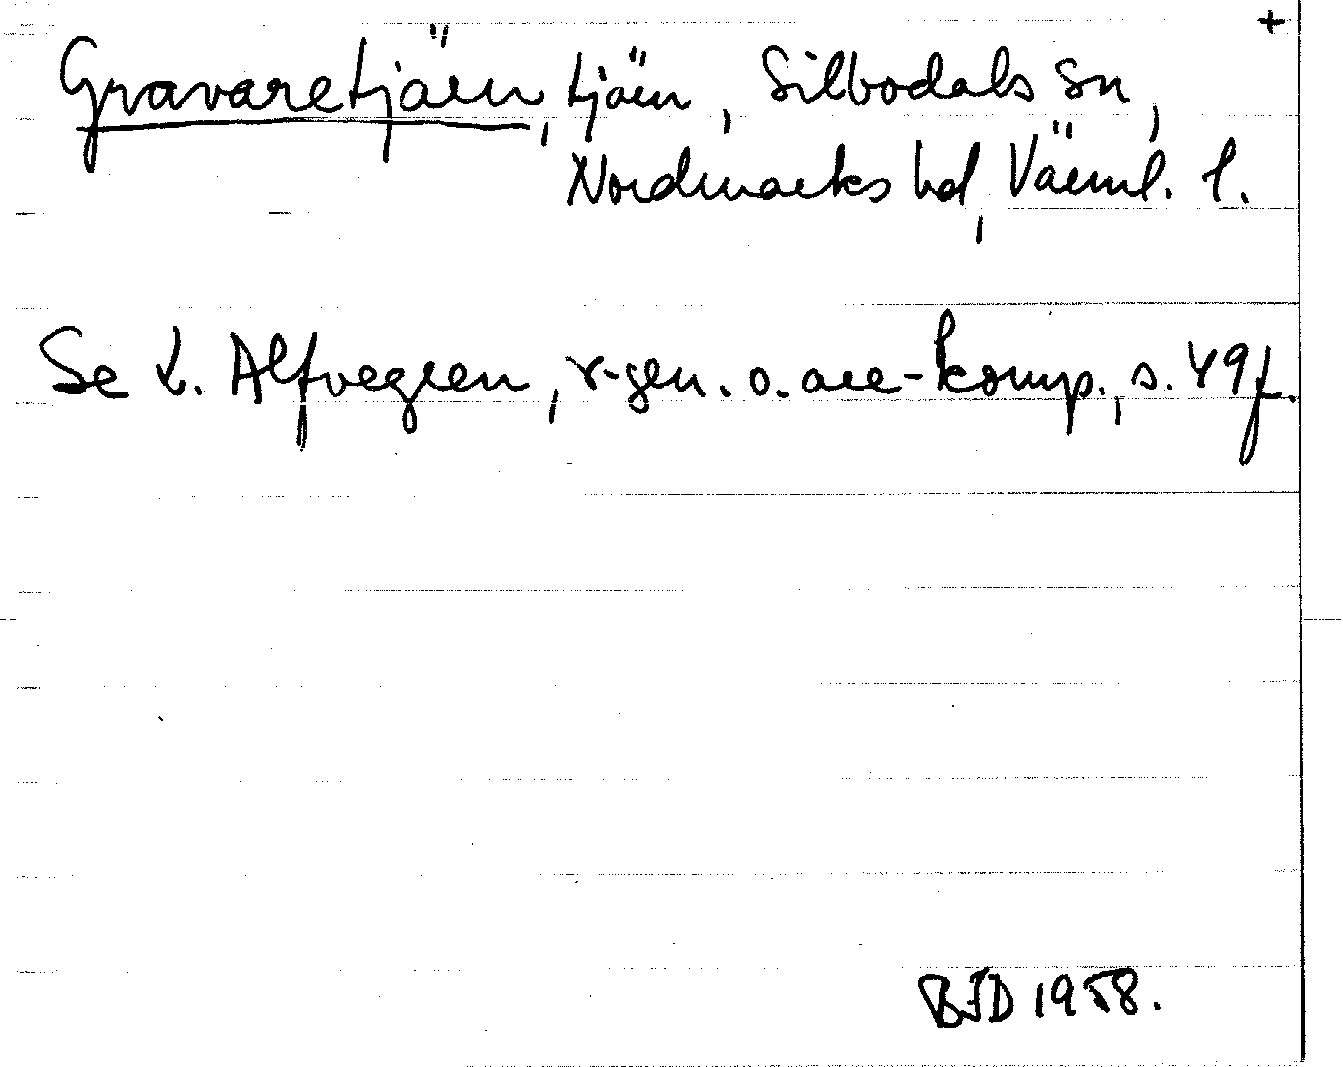 +
Gravaretjärn, tjärn, Silbodals sn,
Nordmarks hd, Värml. l.
Se L. Alfvegren, r-gen. o. are-komp., s. 49f.
BJD 1958.